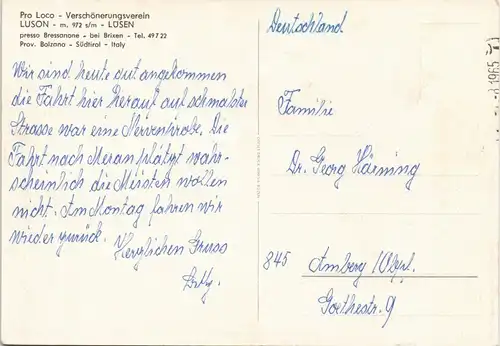 Pro Loco - Verschönerungsverein
LUSON - m. 972 s/m - LÜSEN
presso Bressanone - bei Brixen - Tel. 49722
Prov. Bolzano - Südtirol - Italy
Wir sind heute gut angekommen
die Fahrt hier herauf auf schmalster
Strasse war eine Nervenprobe. Die
Fahrt nach Meran platzt wahr-
scheinlich die Meisten wollen
nicht. Am Montag fahren wir
wieder zurück.
Herzlichen Gruss
Deutschland
1965
Familie
Dr. Georg Hörning
845 Amberg /Opf.
Goethestr. 9